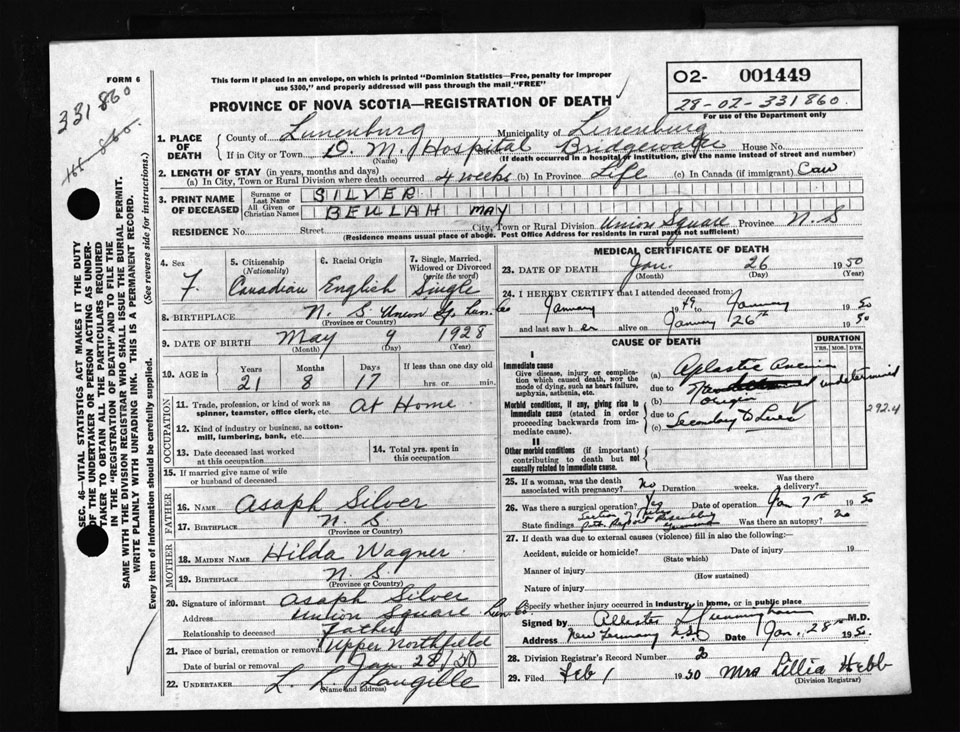 FORM 6
This form if placed in an envelope, on which is printed "Dominion Statistics—Free, penalty for improper
use $300," and properly addressed will pass through the mail "FREE"
O2- 001449
28-02-331860.
For use of the Department only
PROVINCE OF NOVA SCOTIA—REGISTRATION OF DEATH
331860
860.
SEC. 46—VITAL STATISTICS ACT MAKES IT THE DUTY
OF THE UNDERTAKER OR PERSON ACTING AS UNDER-
TAKER TO OBTAIN ALL THE PARTICULARS REQUIRED
IN THE "REGISTRATION OF DEATH" AND TO FILE THE
SAME WITH THE DIVISION REGISTRAR WHO SHALL ISSUE THE BURIAL PERMIT.
WRITE PLAINLY WITH UNFADING INK. THIS IS A PERMANENT RECORD.
Every item of information should be carefully supplied. (See reverse side for instructions.)
1. PLACE OF DEATH
County of Lunenburg Municipality of Lunenburg
If in City or Town D. M. Hospital Street Bridgewater House No.
(Name) (If death occurred in a hospital or institution, give the name instead of street and number)
2. LENGTH OF STAY (in years, months and days)
(a) In City, Town or Rural Division where death occurred 4 weeks (b) In Province Life (c) In Canada (if immigrant) Can
3. PRINT NAME OF DECEASED
Surname or Last Name SILVER
All Given or Christian Names BEULAH MAY
RESIDENCE No. Street City, Town or Rural Division Union Square Province N. S
(Residence means usual place of abode. Post Office Address for residents in rural parts not sufficient)
4. Sex F.
5. Citizenship (Nationality) Canadian
6. Racial Origin English
7. Single, Married, Widowed or Divorced (write the word) Single
8. BIRTHPLACE N. S. Union Sq. Lun. Co
(Province or Country)
9. DATE OF BIRTH May 9 1928
(Month) (Day) (Year)
10. AGE IN Years 21 Months 8 Days 17 If less than one day old hrs. or min.
OCCUPATION
11. Trade, profession or kind of work as spinner, teamster, office clerk, etc. At Home
12. Kind of industry or business, as cotton-mill, lumbering, bank, etc.
13. Date deceased last worked at this occupation
14. Total yrs. spent in this occupation
15. If married give name of wife or husband of deceased
FATHER
16. NAME Asaph Silver
17. BIRTHPLACE N. S
(Province or Country)
MOTHER
18. MAIDEN NAME Hilda Wagner
19. BIRTHPLACE N. S.
(Province or Country)
20. Signature of informant Asaph Silver
Address Union Square Lun Co.
Relationship to deceased Father
21. Place of burial, cremation or removal Upper Northfield
Date of burial or removal Jan. 28/50
22. UNDERTAKER L. L. Langille
(Name and address)
MEDICAL CERTIFICATE OF DEATH
23. DATE OF DEATH Jan. 26 1950
(Month) (Day) (Year)
24. I HEREBY CERTIFY that I attended deceased from:
January 1949 to January 1950
and last saw her alive on January 26th 1950
CAUSE OF DEATH
DURATION
YRS. MOS. DYS.
I
Immediate cause
Give disease, injury or complication which caused death, NOT the mode of dying, such as heart failure, asphyxia, asthenia, etc.
(a) Aplastic Anemia
due to undetermined
Morbid conditions, if any, giving rise to immediate cause (stated in order proceeding backwards from immediate cause).
(b) origin
due to
(c) Secondary to Liver
292.4
II
Other morbid conditions (if important) contributing to death but not causally related to immediate cause.
25. If a woman, was the death associated with pregnancy? No Duration weeks. Was there a delivery?
26. Was there a surgical operation? Yes Date of operation Jan 7th 1950
State findings Was there an autopsy? No
27. If death was due to external causes (violence) fill in also the following:—
Accident, suicide or homicide? Date of injury 19
(State which)
Manner of injury
(How sustained)
Nature of injury
Specify whether injury occurred in industry, in home, or in public place
Signed by Cunningham M.D.
Address New Germany N.S. Date Jan. 28th 1950.
28. Division Registrar's Record Number 2
29. Filed Feb 1 1950 Mrs Lillia Hebb
(Division Registrar)